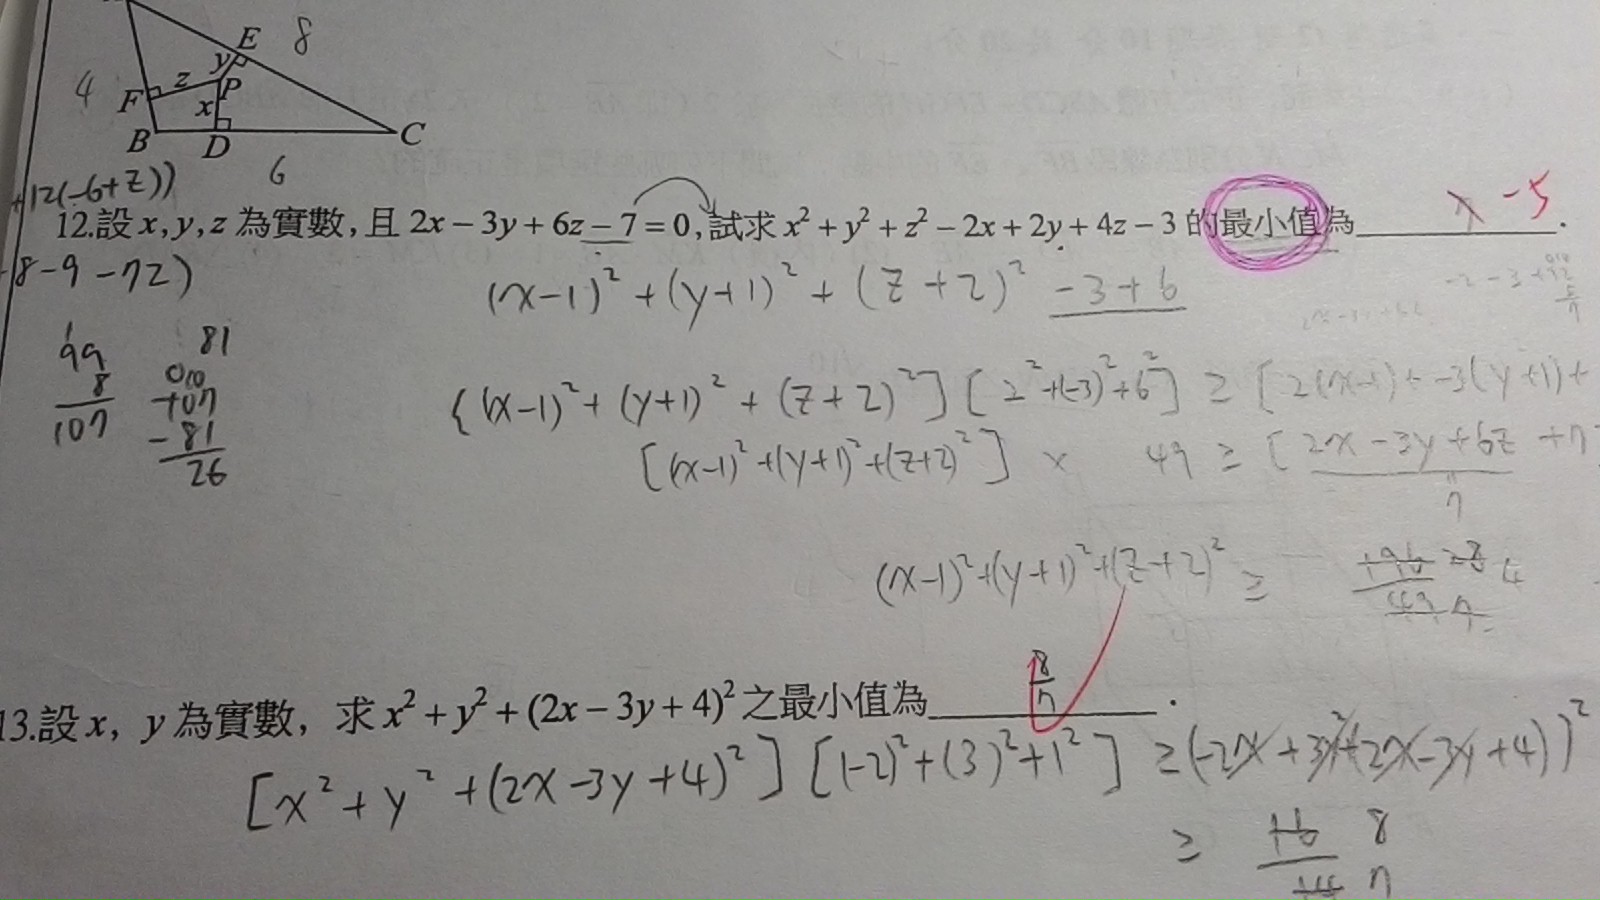 E 8
4 F z y P
x
B D C
6
+12(-6+z))
12.設 x, y, z 為實數, 且 2x − 3y + 6z − 7 = 0, 試求 x² + y² + z² − 2x + 2y + 4z − 3 的最小值為 -5 .
8-9-7z)
(x-1)² + (y+1)² + (z+2)² -3+6
99 81
8 +107
107 -81
26
{(x-1)² + (y+1)² + (z+2)²] [2²+(-3)²+6²] ≥ [2(x-1)+-3(y+1)+
[(x-1)²+(y+1)²+(z+2)²] × 49 ≥ [2x-3y+6z+7
7
(x-1)²+(y+1)²+(z+2)² ≥ 4
13.設 x, y 為實數, 求 x² + y² + (2x − 3y + 4)² 之最小值為 8/7 .
[x² + y² + (2x-3y+4)²] [(-2)²+(3)²+1²] ≥ (-2x+3y+(2x-3y+4))²
≥ 16 8
14 7